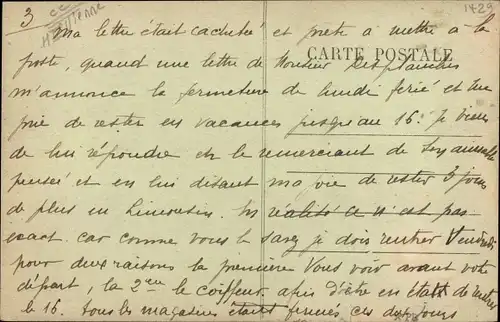 3
Hte Vienne
1429
CARTE POSTALE
Ma lettre était cachetée et prete a mettre a la
poste, quand une lettre de Monsieur Desplanches
m'annonce la fermeture de lundi ferié et me
prie de rester en vacances jusqu'au 16. Je viens
de lui répondre en le remerciant de son aimable
pensée et en lui disant ma joie de rester 3 jours
de plus en Limousin. En réalité ce n'est pas
exact. car comme vous le savez je dois rentrer Vendredi
pour deux raisons la première Vous voir avant votre
départ, la 2eme le coiffeur afin d'être en état de rentrer
le 16. tous les magasins étant fermés ces deux jours